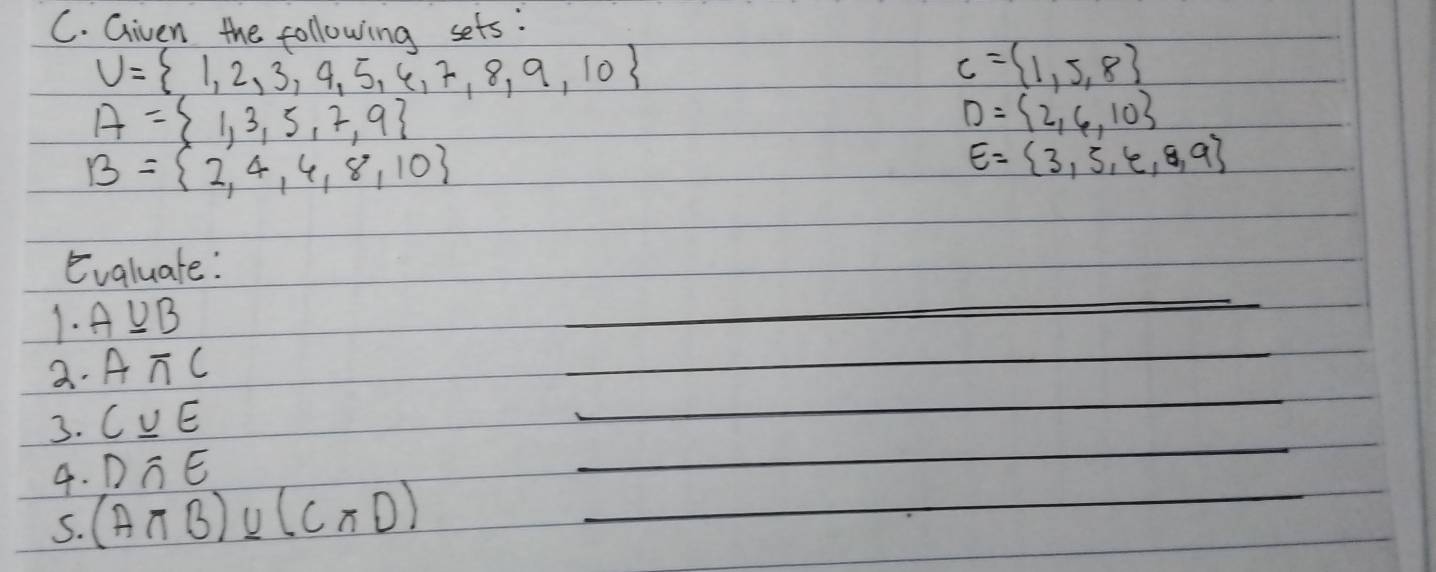 C. Given the following sets:
U = { 1, 2, 3, 4, 5, 6, 7, 8, 9, 10 }
C = {1, 5, 8}
A = { 1, 3, 5, 7, 9 }
D = {2, 6, 10}
B = { 2, 4, 6, 8, 10 }
E = {3, 5, 6, 8, 9}
Evaluate:
1. A ∪ B
2. A ∩ C
3. C ∪ E
4. D ∩ E
5. (A ∩ B) ∪ (C ∩ D)